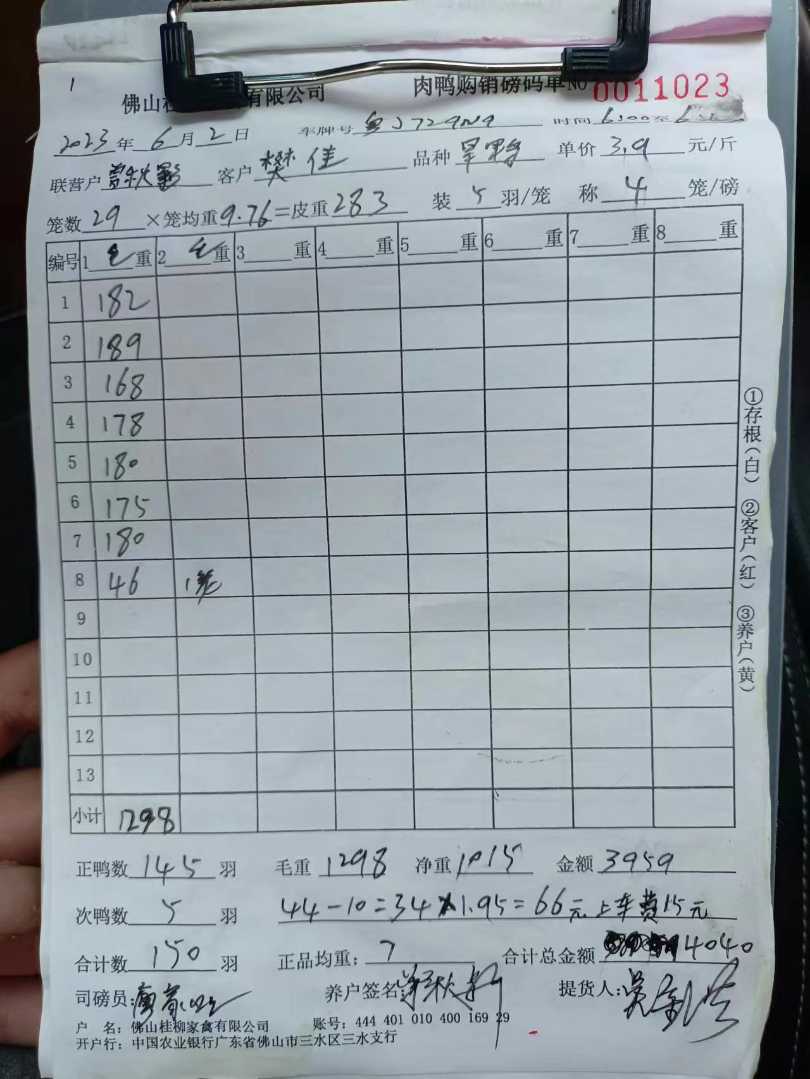 1
佛山桂 有限公司 肉鸭购销磅码单No 0011023
2023年6月2日 车牌号 粤J729N9 时间 6:00至
联营户 客户 樊佳 品种 单价 3.9 元/斤
笼数 29 ×笼均重 9.76 =皮重 283 装 5 羽/笼 称 4 笼/磅
编号 1 毛 重 2 毛 重 3 重 4 重 5 重 6 重 7 重 8 重
1 182
2 189
3 168
4 178
5 180
6 175
7 180
8 46 1笼
9
10
11
12
13
小计 1298
正鸭数 145 羽 毛重 1298 净重 1015 金额 3959
次鸭数 5 羽 44-10=34×1.95=66元 上车费15元
合计数 150 羽 正品均重: 7 合计总金额 4040
司磅员: 养户签名: 提货人:
户 名: 佛山桂柳家禽有限公司 账号: 444 401 010 400 169 29
开户行: 中国农业银行广东省佛山市三水区三水支行
①存根(白) ②客户(红) ③养户(黄)